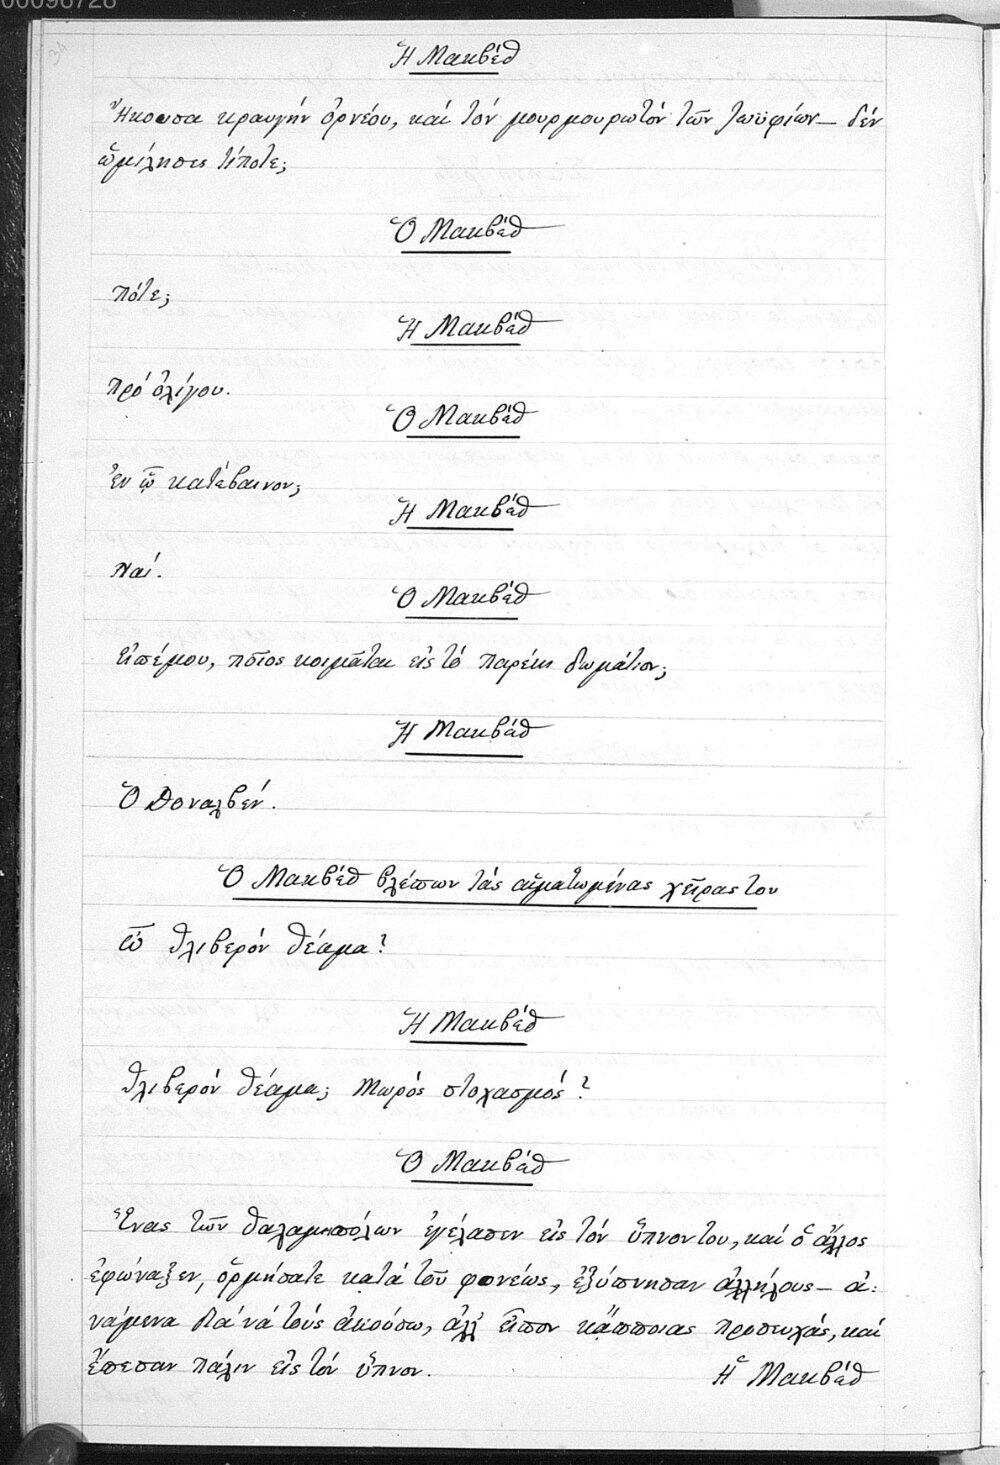 00096728
34
Ἡ Μακβέθ
Ἤκουσα κραυγήν ὀρνέου, καί τόν μουρμουρωτόν τῶν ζωϋφίων — δέν
ὡμίλησες τίποτε;
Ὁ Μακβέθ
πότε;
Ἡ Μακβέθ
πρό ὀλίγου.
Ὁ Μακβέθ
Ἐν ᾧ κατέβαινον;
Ἡ Μακβέθ
Ναί.
Ὁ Μακβέθ
Εἰπέ μου, ποῖος κοιμᾶται εἰς τό παρέκει δωμάτιον;
Ἡ Μακβέθ
Ὁ Δοναλβέν.
Ὁ Μακβέθ βλέπων τάς αἱματωμένας χεῖρας του
ὦ θλιβερόν θέαμα!
Ἡ Μακβέθ
Θλιβερόν θέαμα; Μωρός στοχασμός!
Ὁ Μακβέθ
Ἕνας τῶν θαλαμηπόλων ἐγέλασεν εἰς τόν ὕπνον του, καί ὁ ἄλλος
ἐφώναξεν, ὁρμήσατε κατά τοῦ φονέως, ἐξύπνησαν ἀλλήλους — ἀ:
νάμενα διά νά τούς ἀκούσω, ἀλλ' εἶπον κάπποιας προσευχάς, καί
ἔπεσαν πάλιν εἰς τόν ὕπνον.
Ἡ Μακβέθ